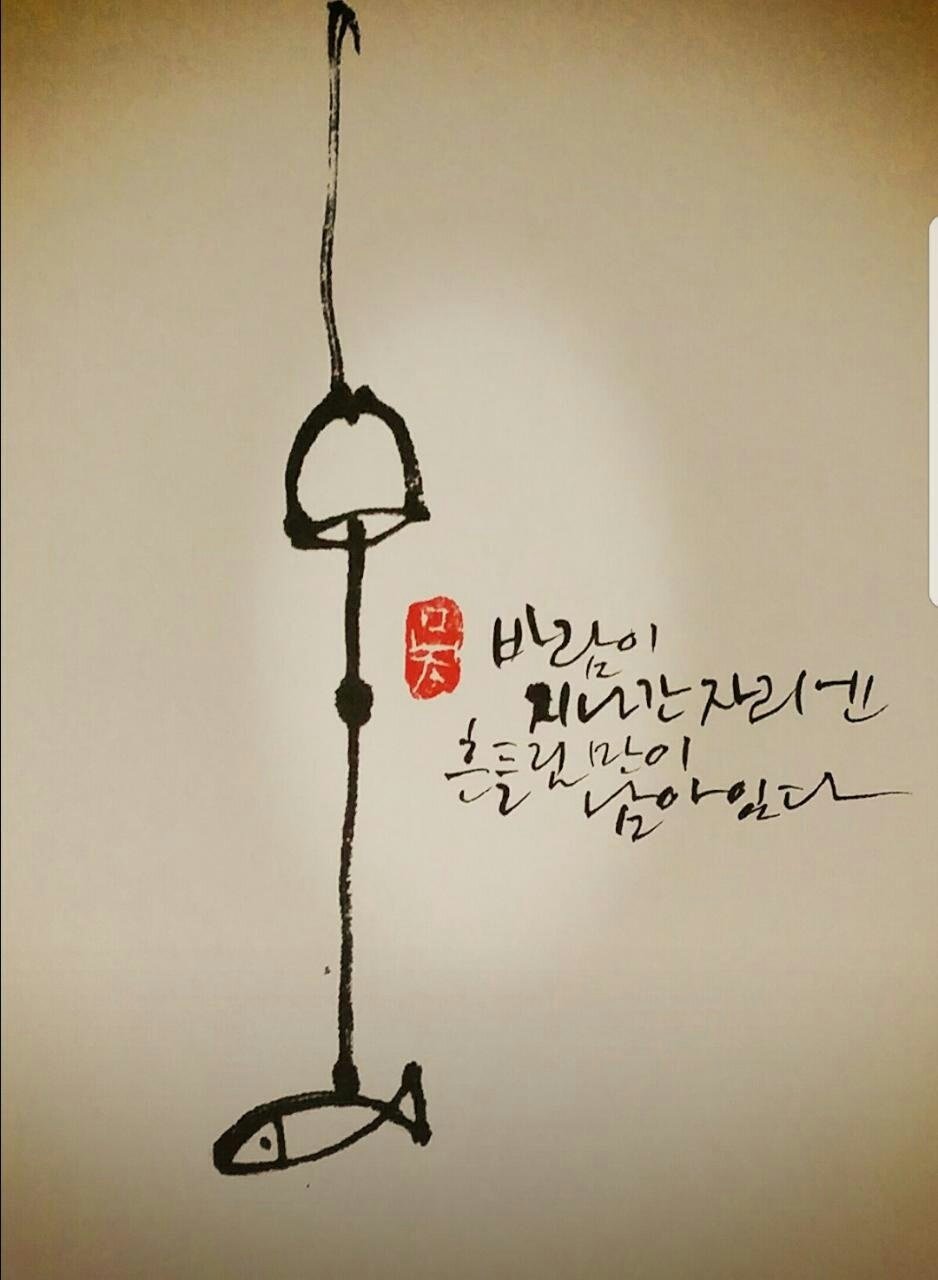 바람이
지나간 자리엔
흔들림만이
남아있다